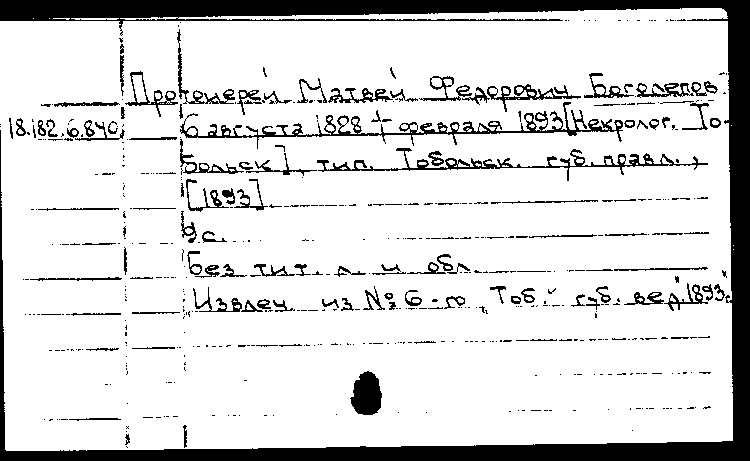 Протоиерей Матвей Федорович Боголепов
18.182.6.840 6 августа 1828 † февраля 1893 [Некролог. То-
больск], тип. Тобольск. губ. правл.,
[1893].
9 с.
Без тит. л. и обл.
Извлеч. из № 6-го „Тоб." губ. вед." 1893 г.